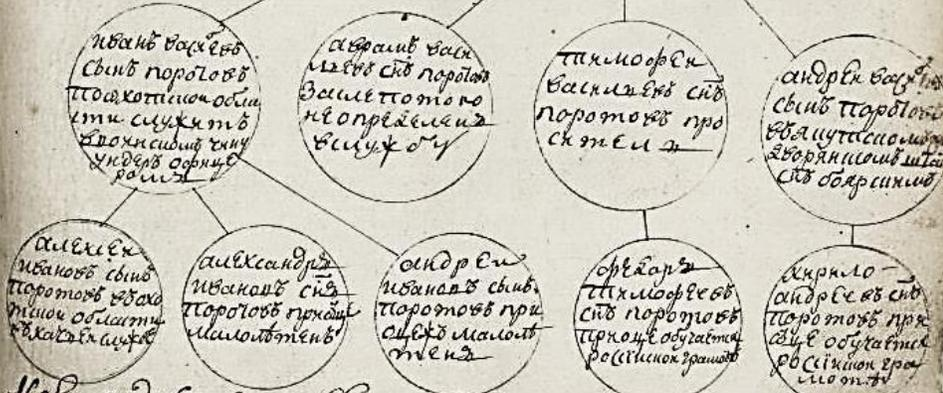 иванъ васильевъ
сынъ поротовъ
по охотской обла
сти служитъ
в воинскомъ чину
ундеръ офице
ромъ
аврамъ васи
льевъ снъ поротовъ
за слепотою
не определенъ
в службу
тимофей
васильевъ снъ
поротовъ про
ситель
андрей васильевъ
сынъ поротовъ
в якуцкомъ
дворянскомъ
снъ боярскимъ
алексей
ивановъ сынъ
поротовъ в охо
тской области
в казачей службе
александръ
ивановъ снъ
поротовъ при отце
малолетенъ
андрей
ивановъ сынъ
поротовъ при
отце малоле
тенъ
федоръ
тимофеевъ
снъ поротовъ
при отце обучается
россииской грамоте
кирило
андреевъ снъ
поротовъ при
отце обучается
россииской гра
моте